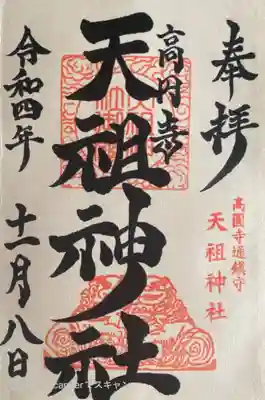 奉拝
高円寺
天祖神社
高圓寺通鎮守
天祖神社
令和四年
十一月八日
でスキャン